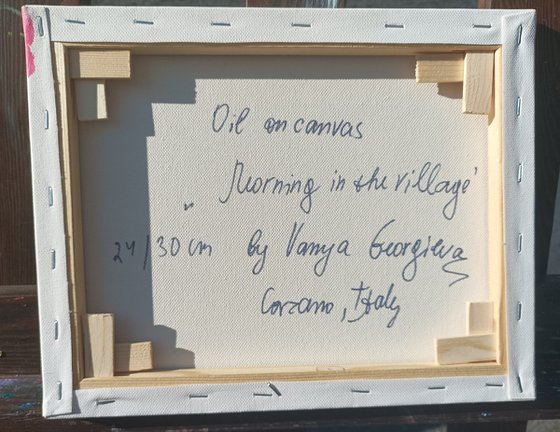 Oil on canvas
„Morning in the village'
24/30 cm by Vanya Georgieva
Corzano, Italy